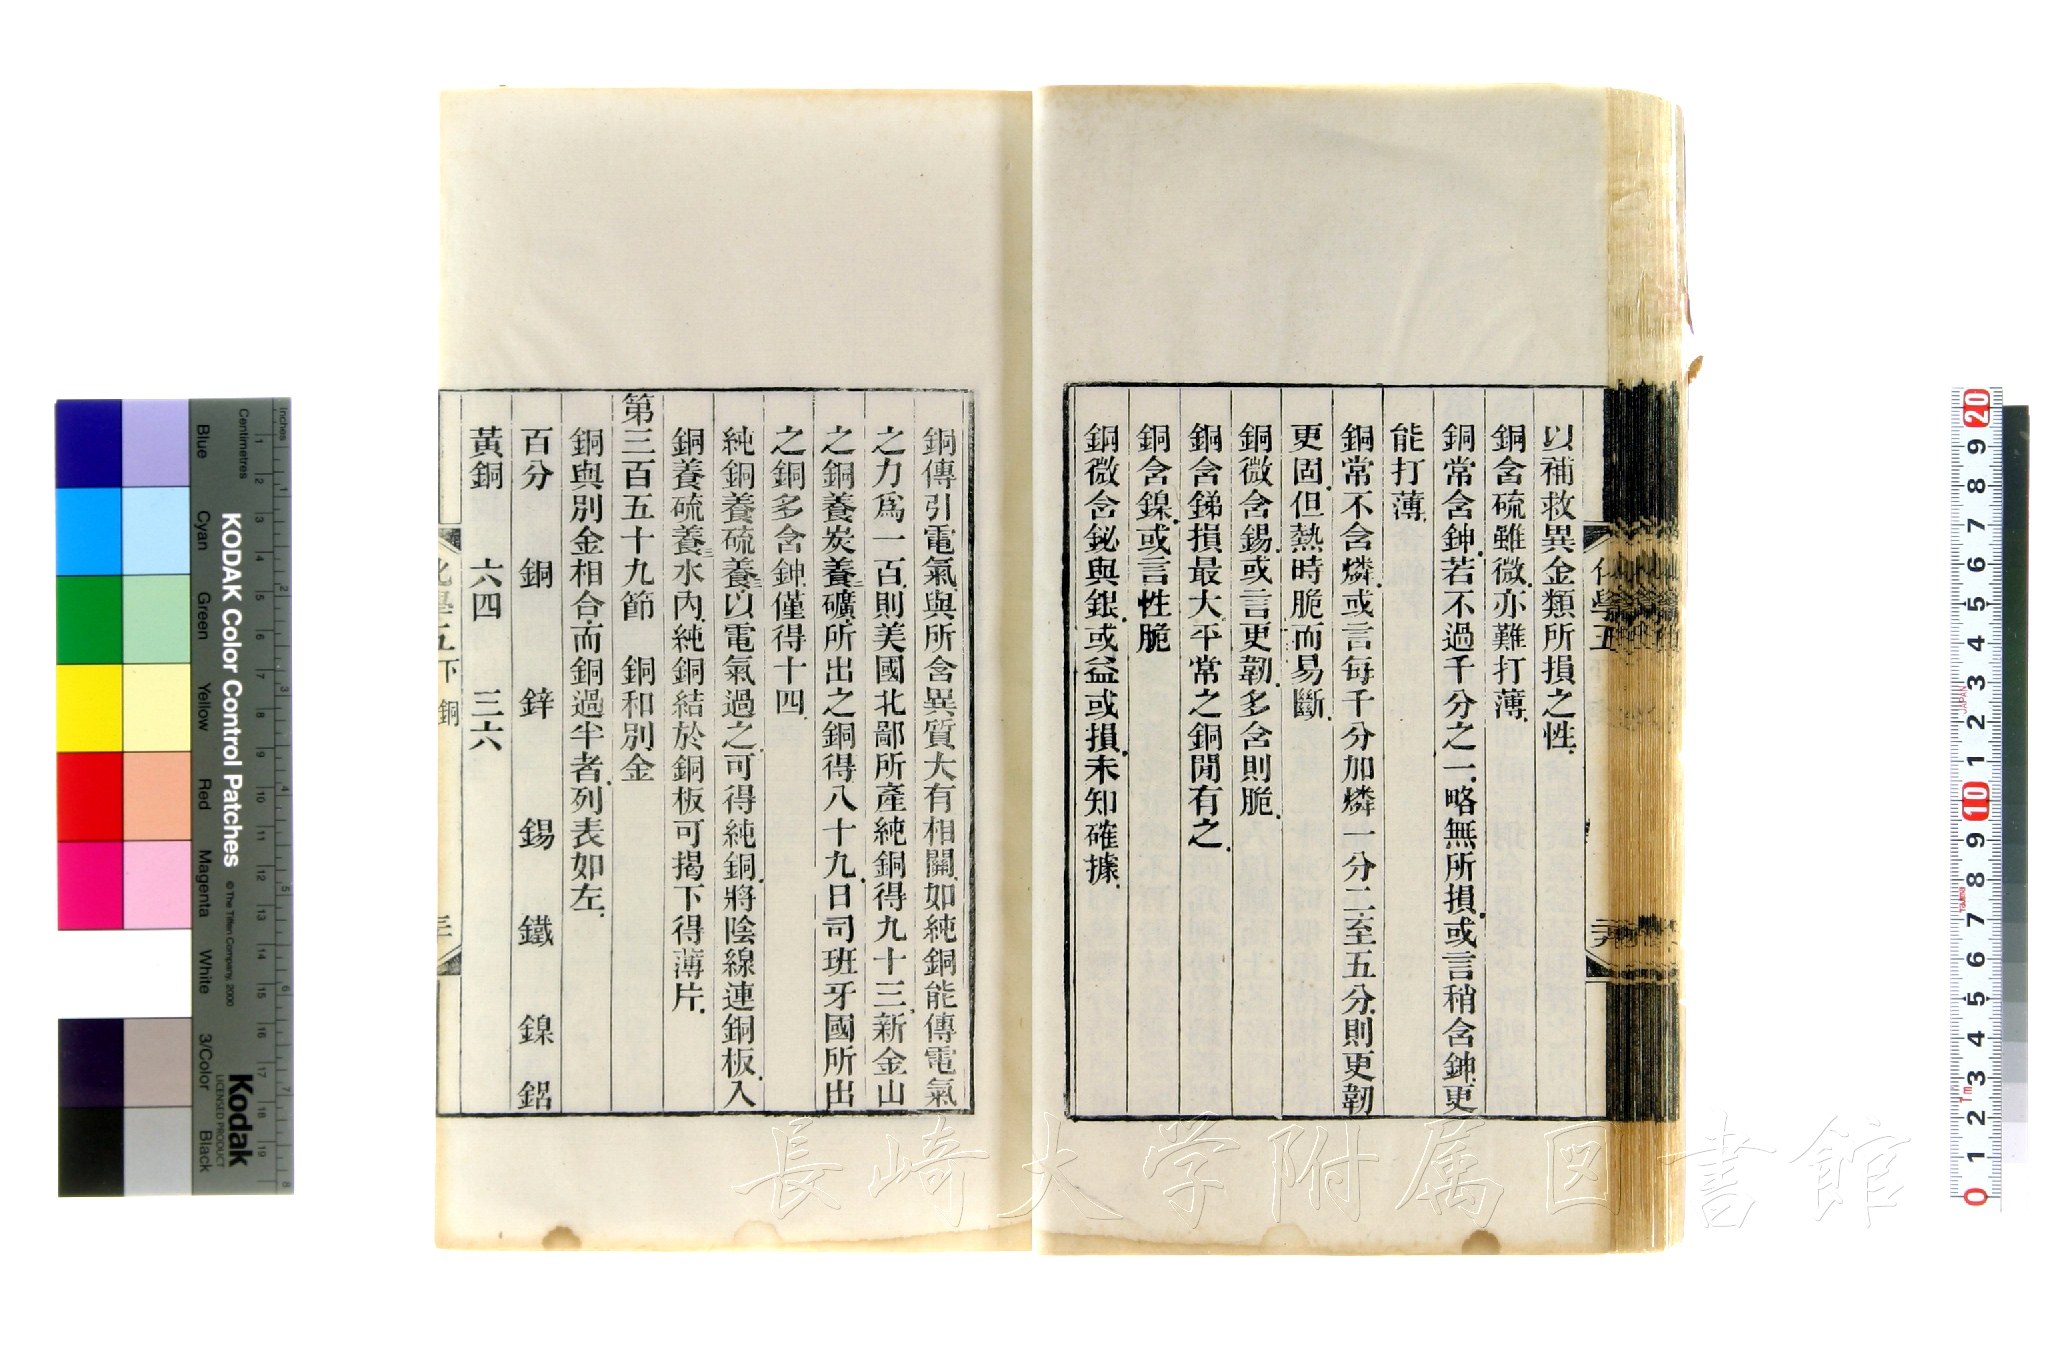 以補救異金類所損之性
銅含硫雖微亦難打薄
銅常含鉮若不過千分之一略無所損或言稍含鉮更
能打薄
銅常不含燐或言每千分加燐一分二至五分則更韌
更固但熱時脆而易斷
銅微含錫或言更韌多含則脆
銅含銻損最大平常之銅閒有之
銅含鎳或言性脆
銅微含鉍與銀或益或損未知確據
化學五
銅傳引電氣與所含異質大有相關如純銅能傳電氣
之力爲一百則美國北鄙所產純銅得九十三新金山
之銅養炭養礦所出之銅得八十九日司班牙國所出
之銅多含鉮僅得十四
純銅養硫養三以電氣過之可得純銅將陰線連銅板入
銅養硫養三水內純銅結於銅板可揭下得薄片
第三百五十九節 銅和別金
銅與別金相合而銅過半者列表如左
百分 銅 鋅 錫 鐵 鎳 鋁
黃銅 六四 三六
化學五下 銅
長崎大学附属図書館
KODAK Color Control Patches
© The Tiffen Company, 2000
Kodak
LICENSED PRODUCT
Inches
Centimetres
Blue Cyan Green Yellow Red Magenta White 3/Color Black
1 2 3 4 5 6 7 8
1 2 3 4 5 6 7 8 9 10 11 12 13 14 15 16 17 18 19
20 9 8 7 6 5 4 3 2 1 10 9 8 7 6 5 4 3 2 1 0
JAPAN